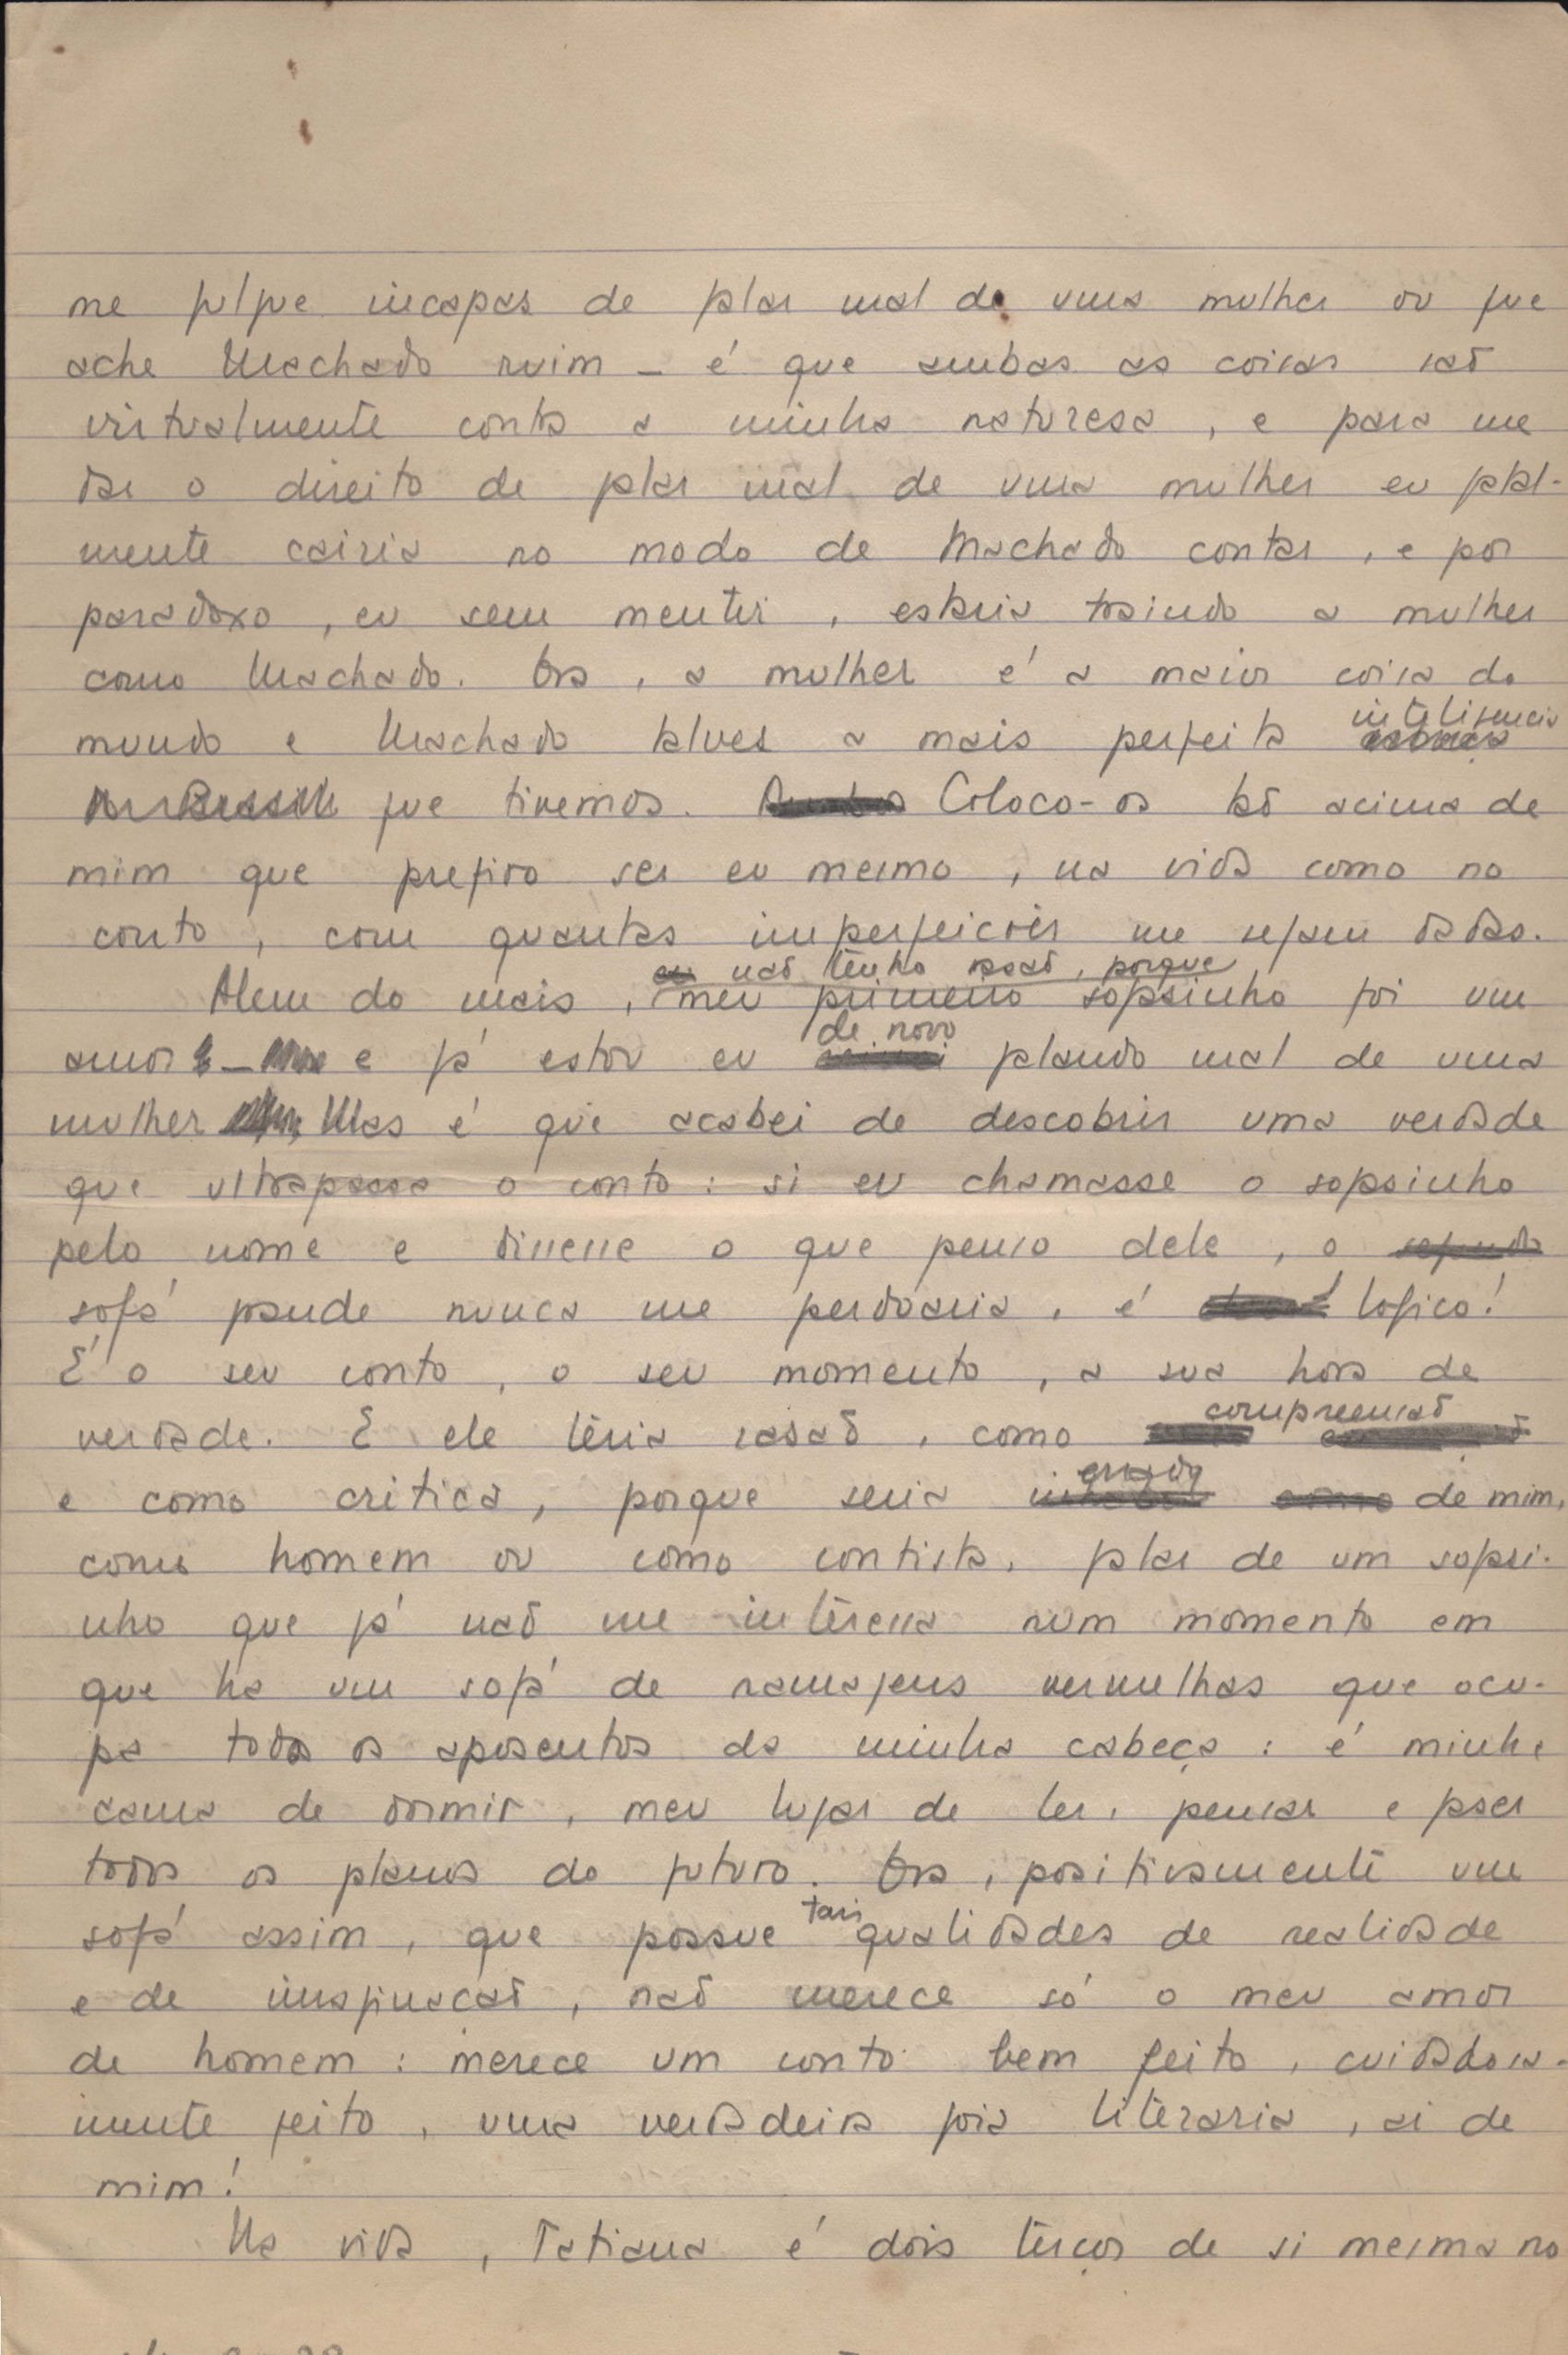 me julgue incapas de falar mal de uma mulher ou que
ache Machado ruim – é que ambas as coisas saõ
virtualmente contra a minha naturesa, e para me
dar o direito de falar mal de uma mulher eu fatal-
mente cairia no modo de Machado contar, e por
paradoxo, eu sem mentir, estaria traindo a mulher
como Machado. Ora, a mulher é a maior coisa do
mundo e Machado talves a mais perfeita inteligencia
que tivemos. Coloco-os taõ acima de
mim que prefiro ser eu mesmo, na vida como no
conto, com quantas imperfeições me sejam dadas.
Alem do mais, naõ tenho rasaõ, porque meu primeiro sofasinho foi um
amor – e já estou eu de novo falando mal de uma
mulher. Mas é que acabei de descobrir uma verdade
que ultrapassa o conto: si eu chamasse o sofasinho
pelo nome e dissesse o que penso dele, o segundo
sofá grande nunca me perdoaria, é logico!
É o seu conto, o seu momento, a sua hora de
verdade. E ele teria rasaõ, como compreensaõ
e como critica, porque seria errado de mim,
como homem ou como contista, falar de um sofasi-
nho que já naõ me interessa num momento em
que ha um sofá de ramagens vermelhas que ocu-
pa todos os aposentos da minha cabeça: é minha
cama de dormir, meu lugar de ler, pensar e faser
todos os planos do futuro. Ora, positivamente um
sofá assim, que possue tais qualidades de realidade
e de imaginaçaõ, naõ merece só o meu amor
de homem: merece um conto bem feito, cuidadosa-
mente feito, uma verdadeira joia literaria, ai de
mim!
Na vida, Tatiana é dois terços de si mesma no